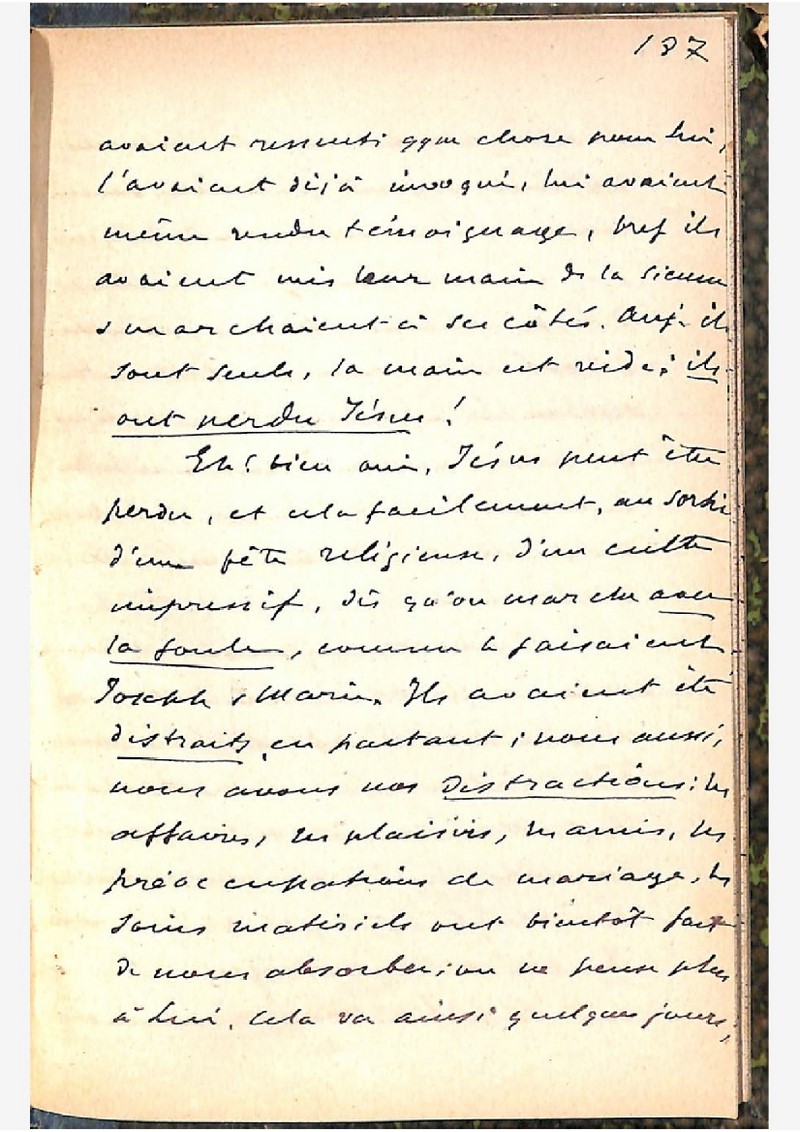 187
avaient ressenti qqe chose pour Lui,
l'avaient déjà invoqué, lui avaient
même rendu témoignage, bref ils
avaient mis leur main ds la sienne
& marchaient à ses côtés. Auj. ils
sont seuls, la main est vide; ils
ont perdu Jésus !
Eh! bien oui, Jésus peut être
perdu, et cela facilement, au sortir
d'une fête religieuse, d'un culte
impressif, dès qu'on marche avec
la foule, comme le faisaient
Joseph & Marie. Ils avaient été
distraits en partant; nous aussi,
nous avons nos distractions: les
affaires, les plaisirs, les amis, les
préoccupations de mariage, les
soins matériels ont bientôt fait
de nous absorber; on ne pense plus
à Lui. Cela va ainsi quelques jours,